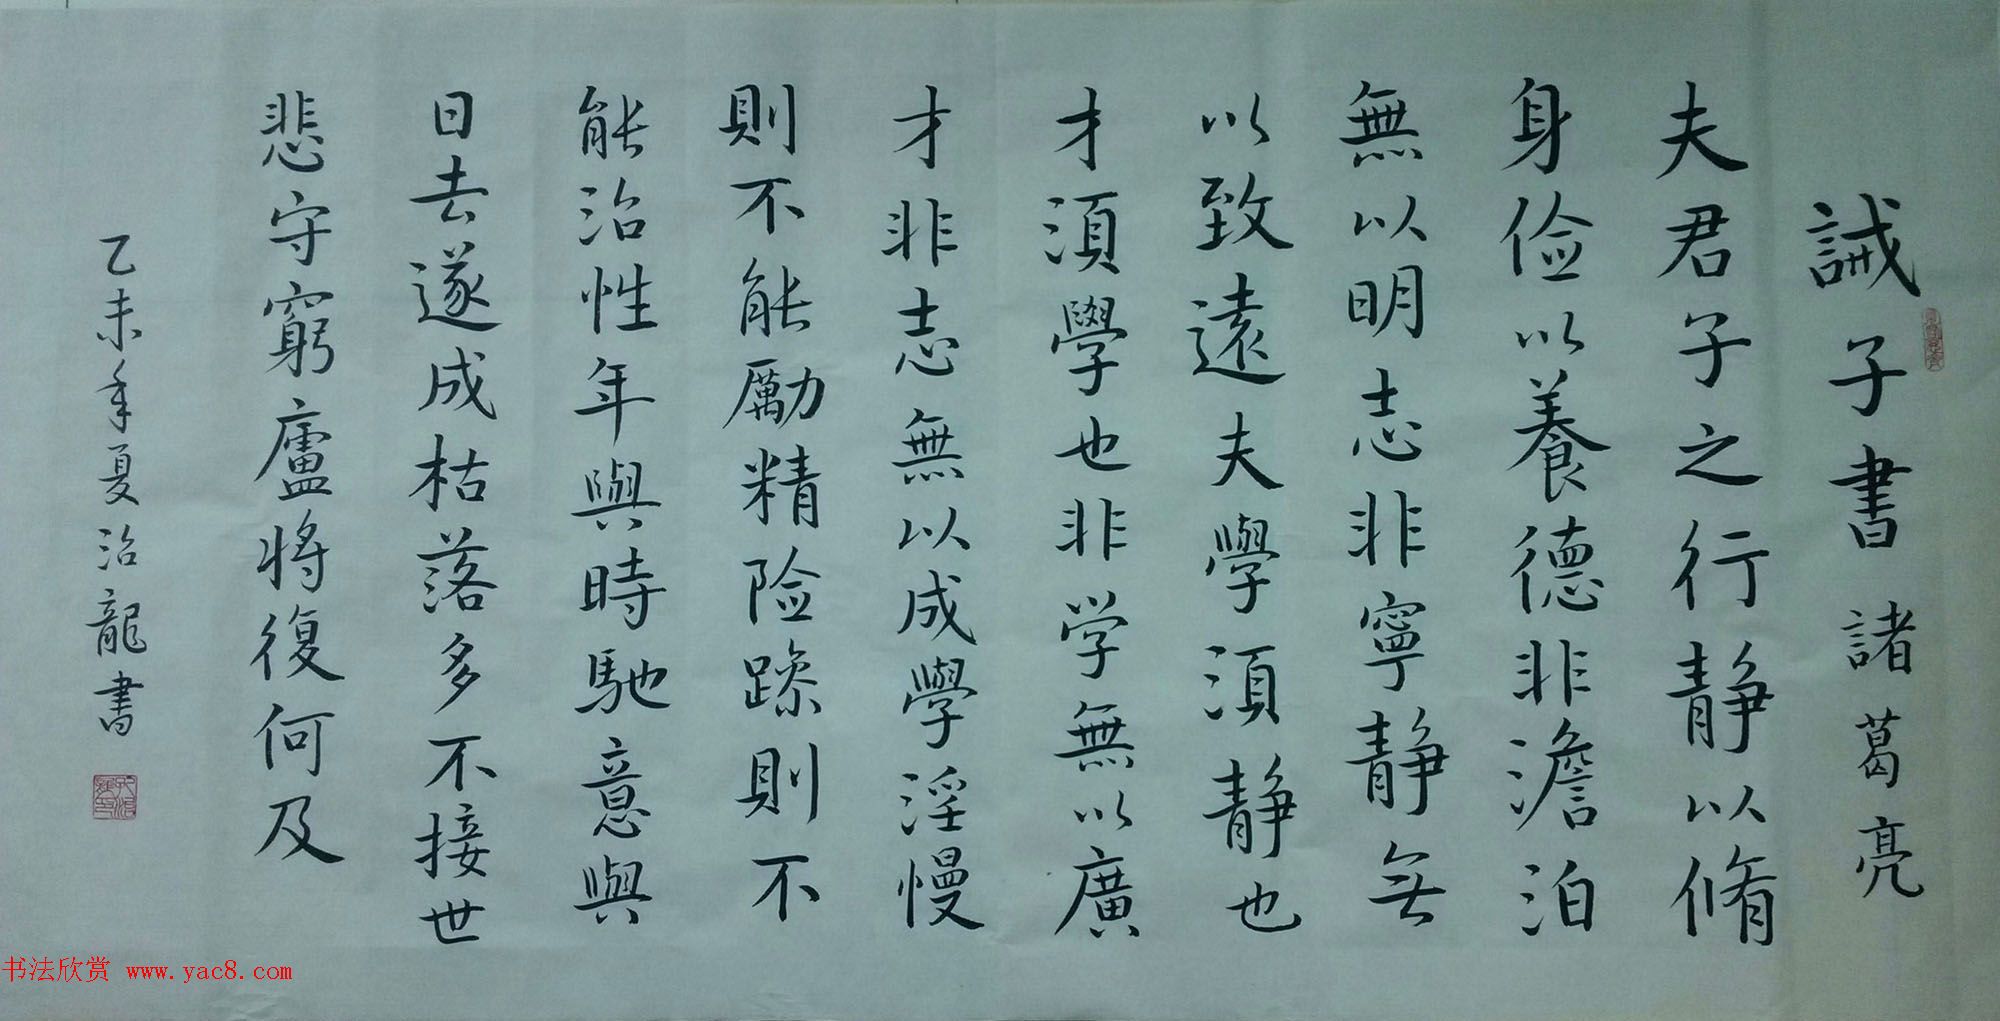 誡子書 諸葛亮
夫君子之行静以脩
身俭以養德非澹泊
無以明志非寧静无
以致遠夫學須静也
才須學也非学無以廣
才非志無以成學淫慢
則不能勵精险躁則不
能治性年與時馳意與
日去遂成枯落多不接世
悲守窮廬将復何及
乙未年夏治龍書
书法欣赏 www.yac8.com